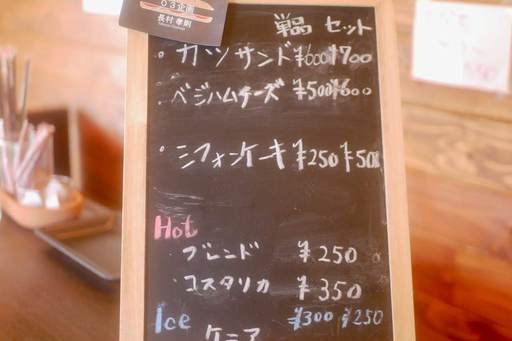 03企画
長村 孝嗣
単品 セット
・カツサンド ¥600 ¥700
・ベジハムチーズ ¥500 ¥600
・シフォンケーキ ¥250 ¥500
Hot
・ブレンド ¥250
・コスタリカ ¥350
Ice ¥300 ¥250
ケニア